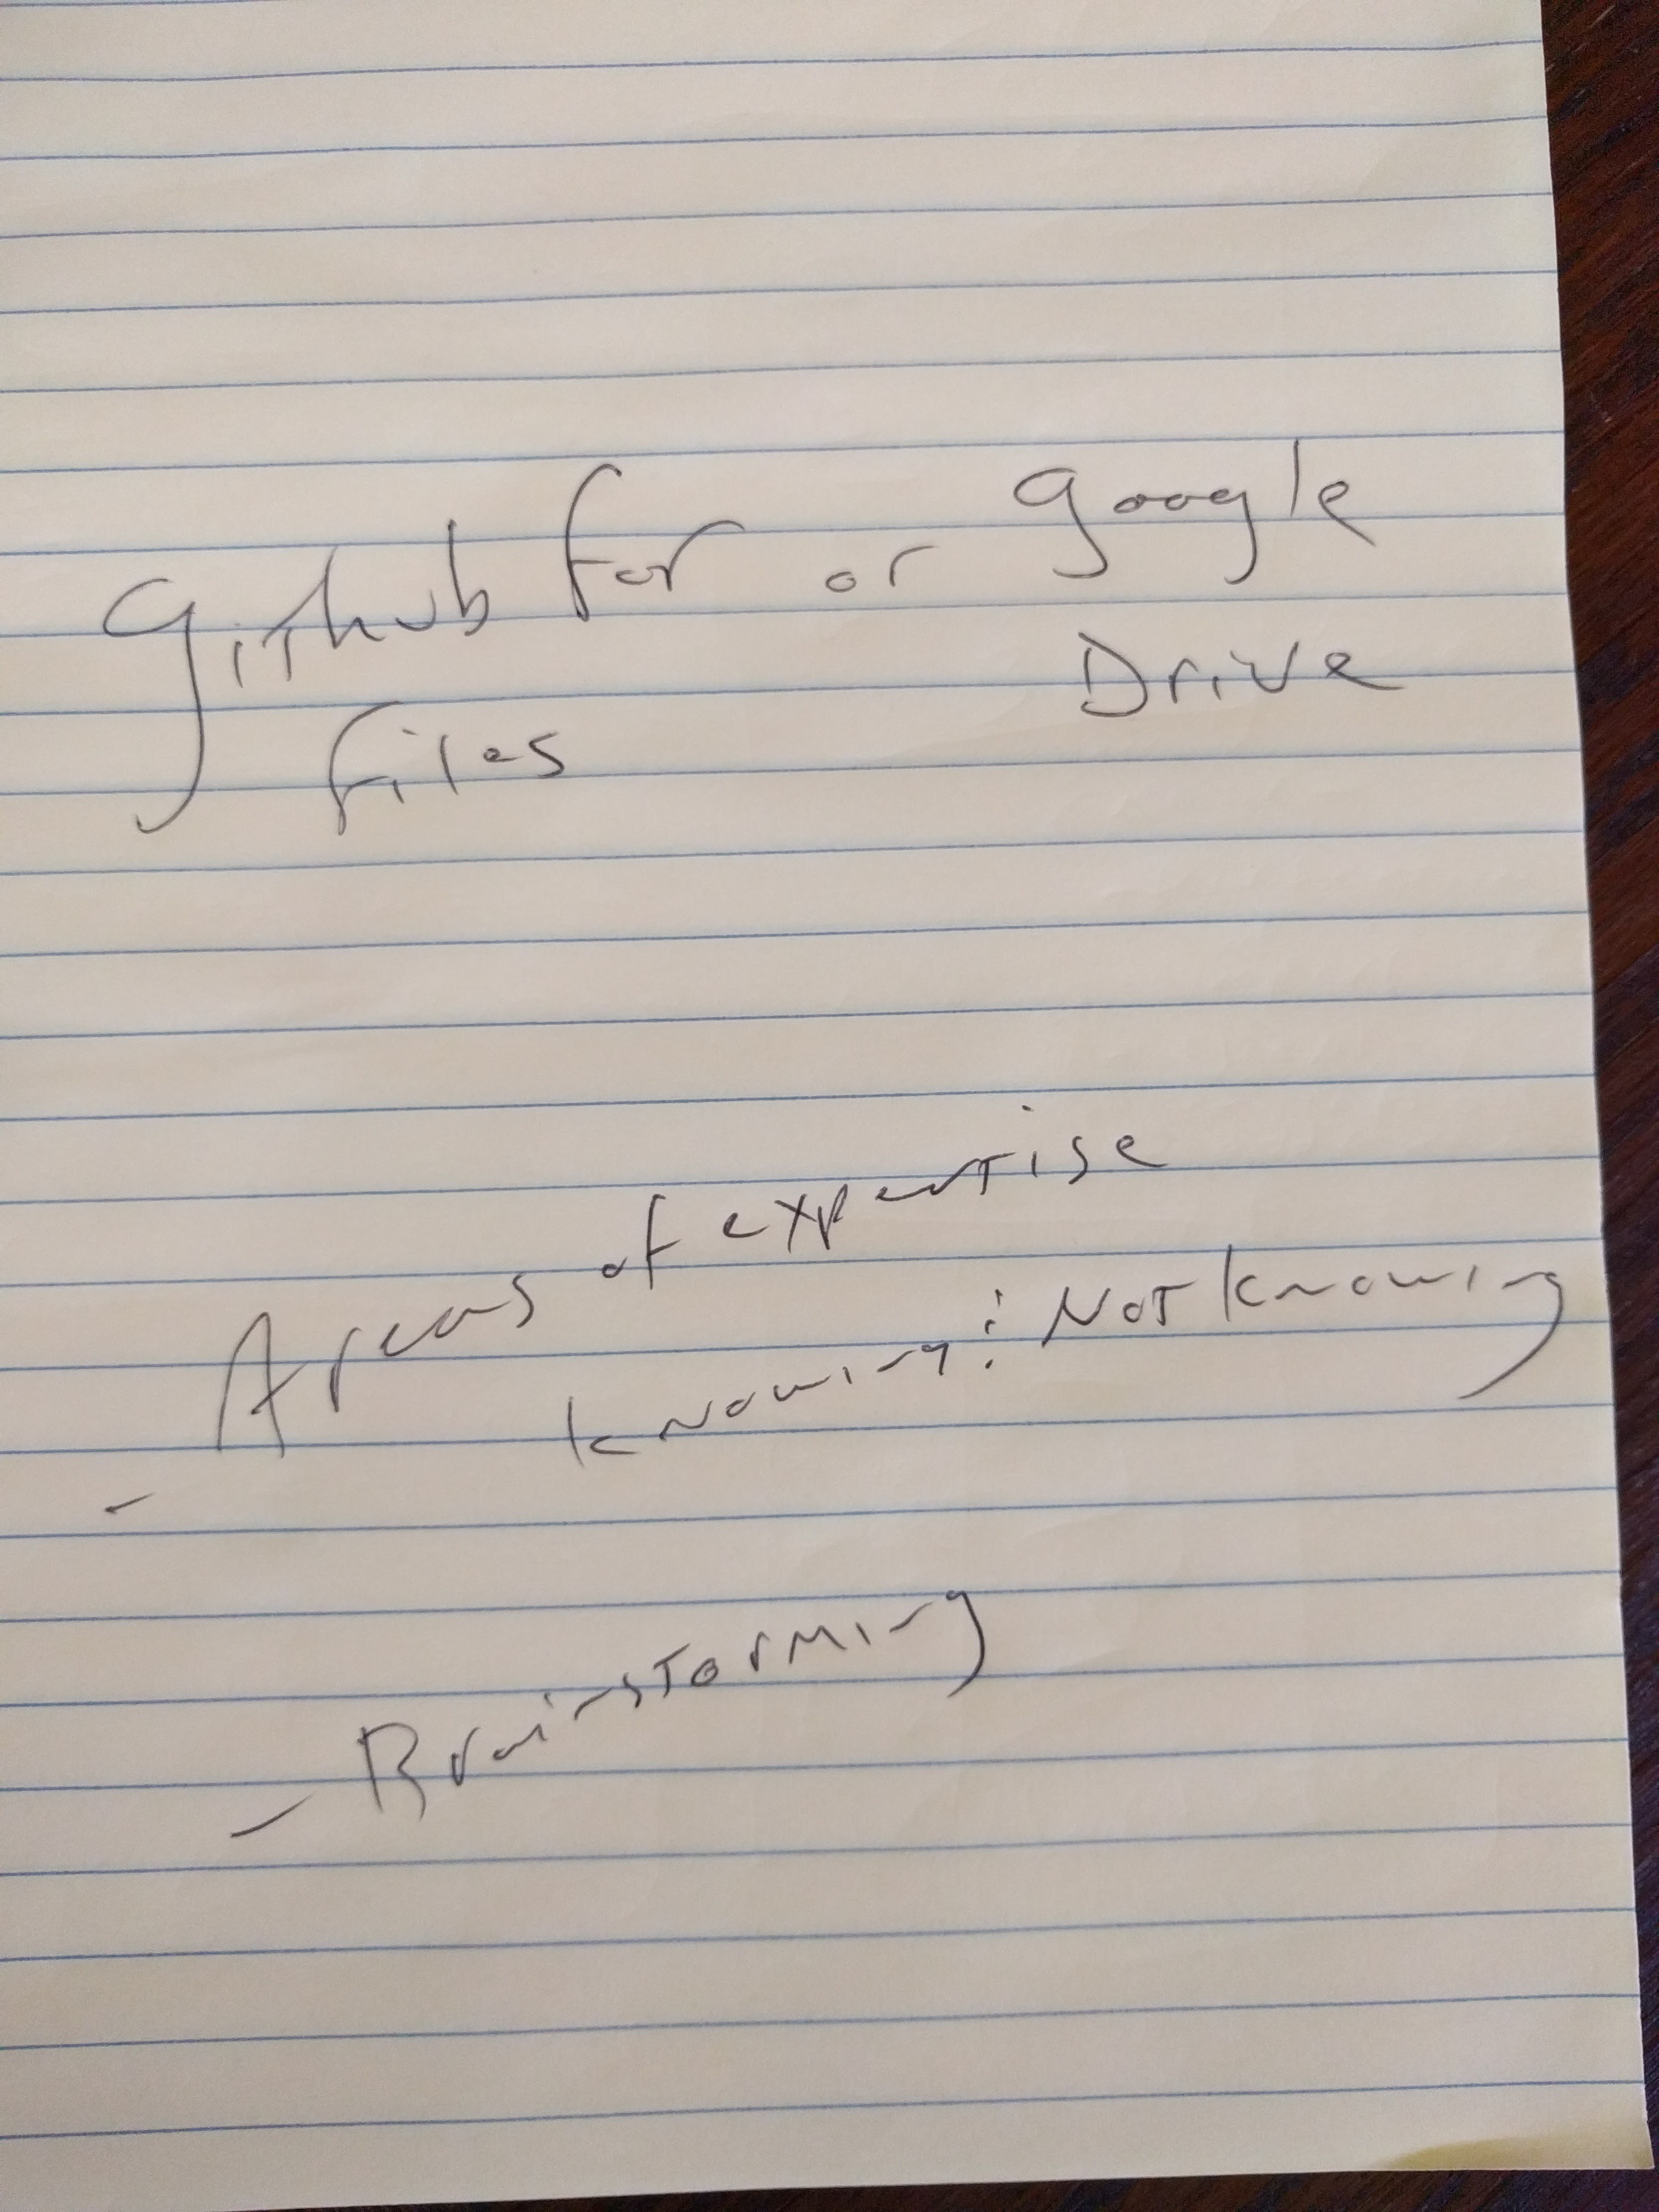 Github for or Google
files Drive
- Areas of expertise
knowing : Not knowing
- Brainstorming